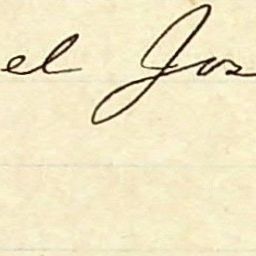 el Jos